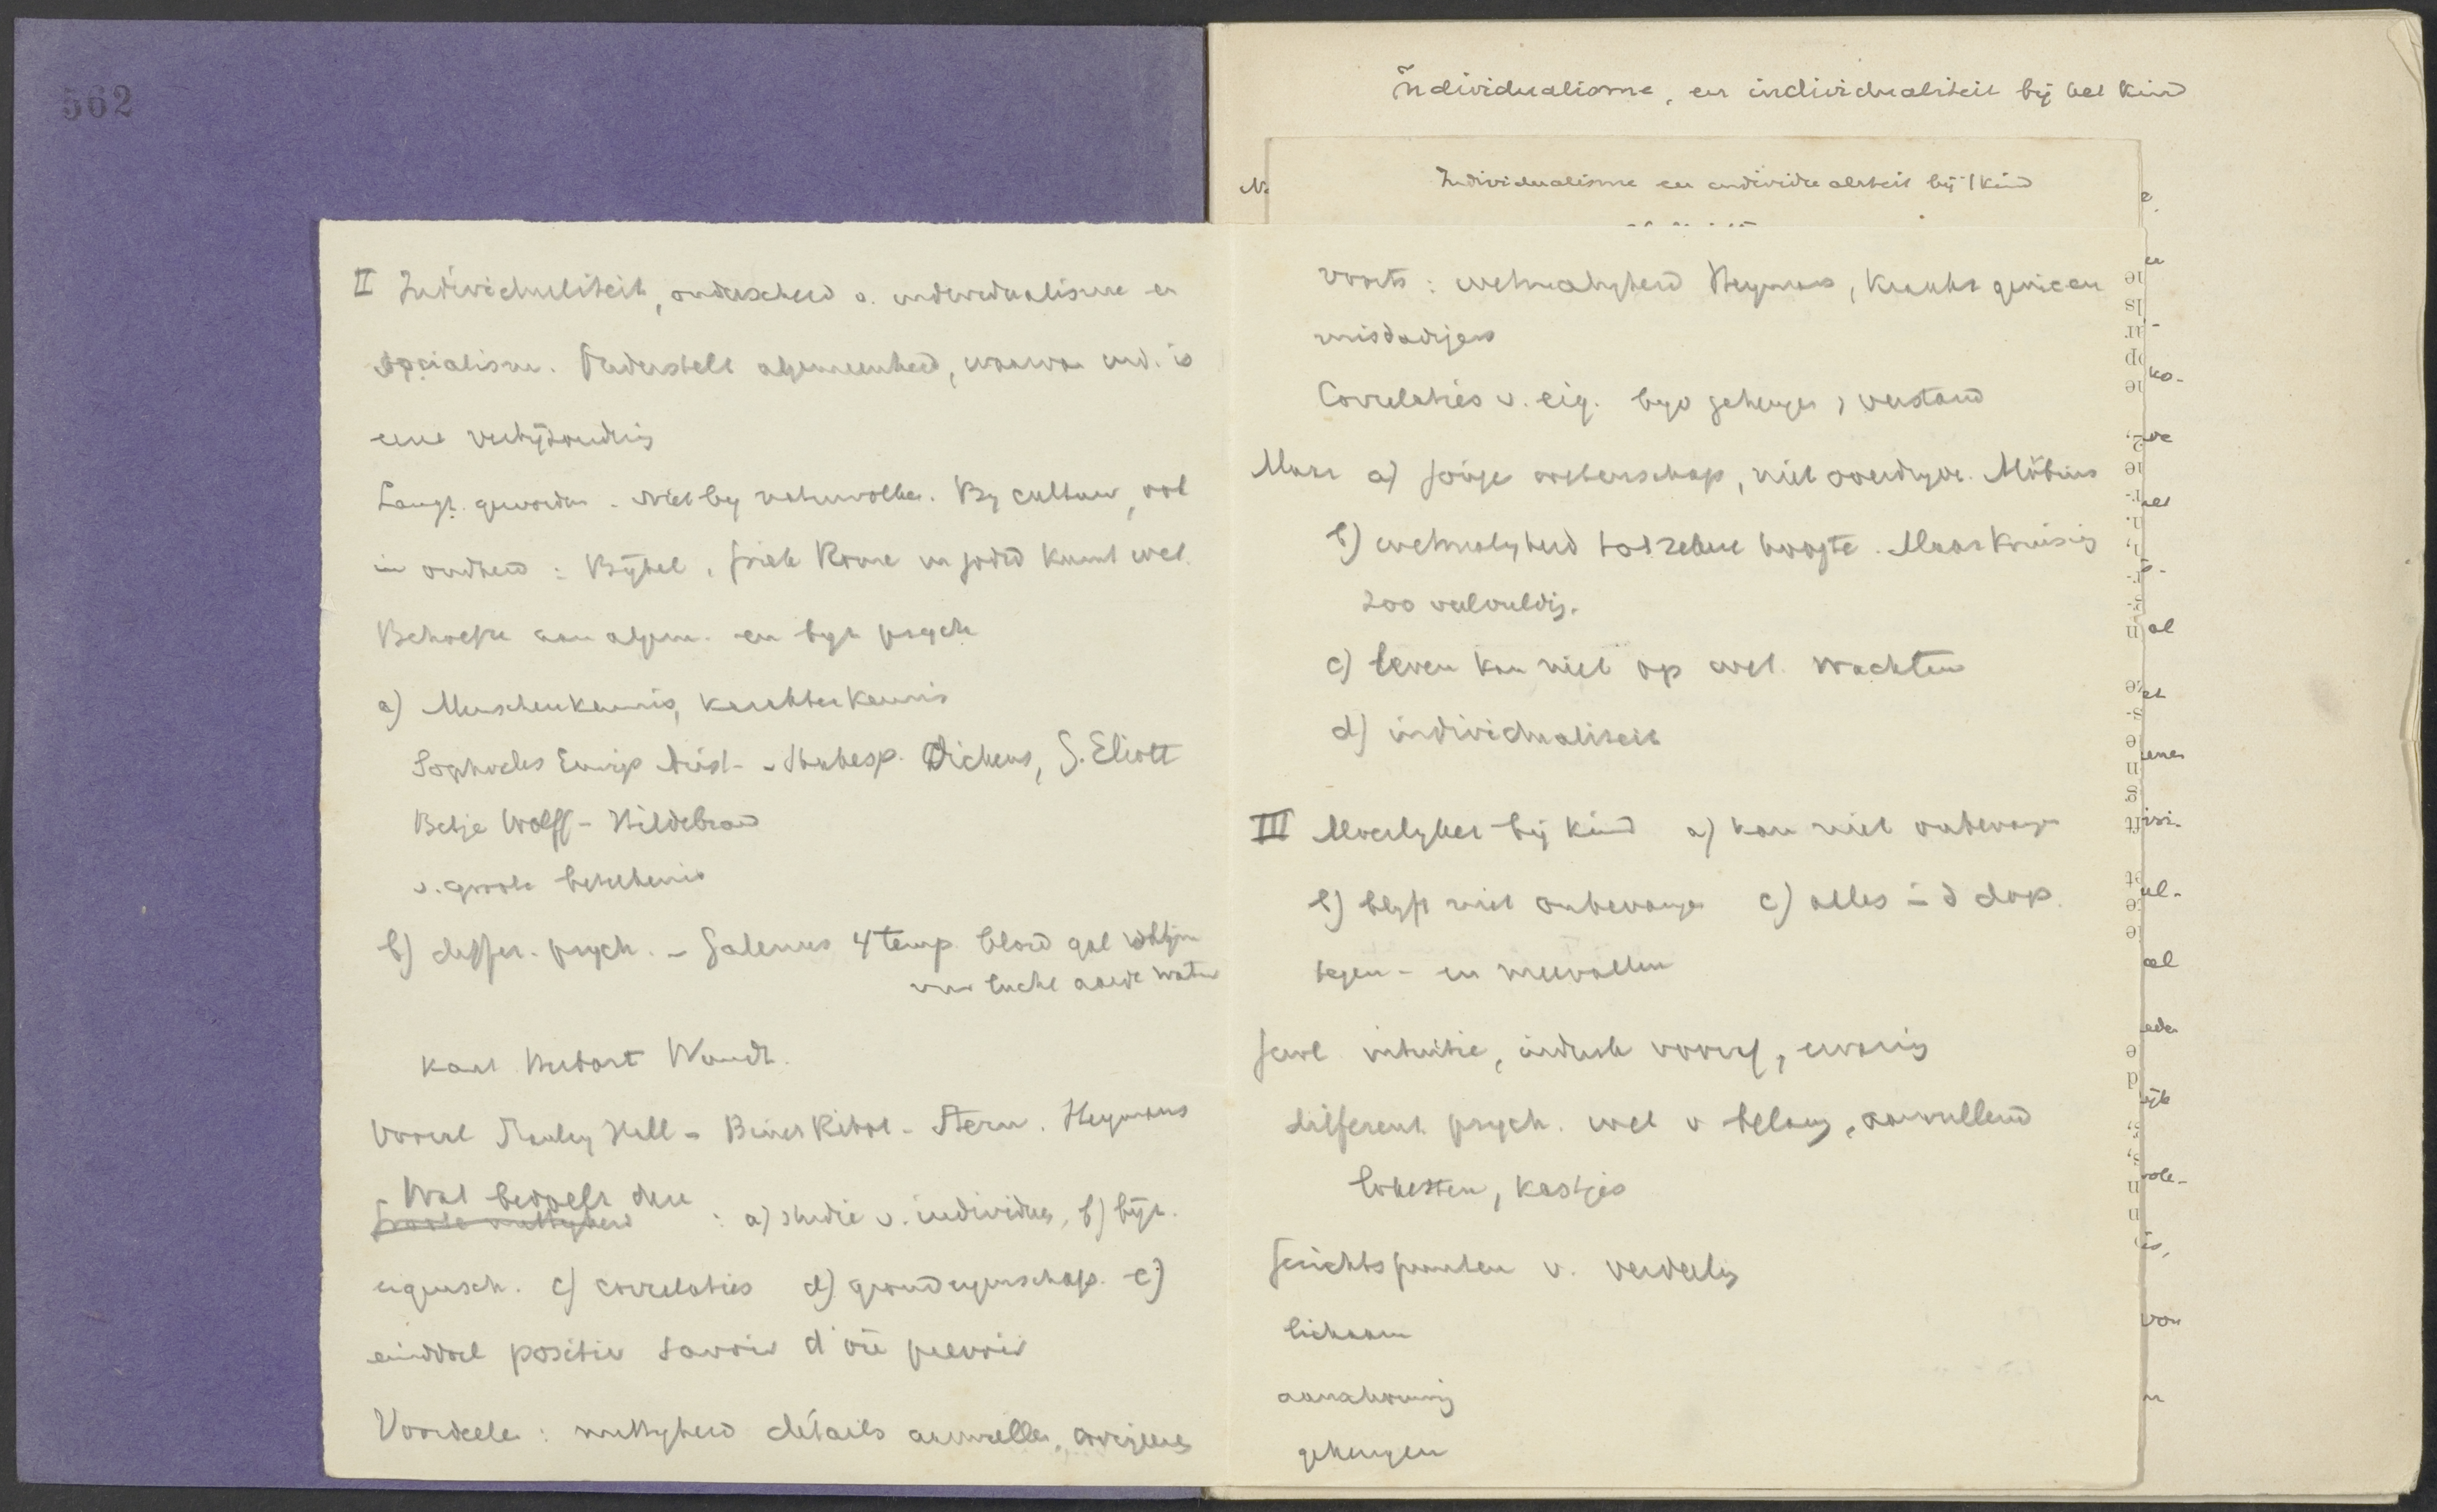 562
II Individualiteit, onderscheid v. individualisme en
socialisme. Onderstelt algemeenheid, waarvan ind. is
eene verbijzondering
Langz. geworden - niet by natuurvolken. By cultuur, ook
in oudheid: Bijbel, Griek Rome en jodend kunst wel.
Behoefte aan algem. en byz psych
a) Menschenkennis, karakterkennis
Sophocles Eurip Arist - Shakesp. Dickens, G. Eliott
Betje Wolff - Hildebrand
v. groote beteekenis
b) differ. psych. - Galenus 4 temp. bloed gal
vuur lucht aarde water
Kant Herbart Wundt.
Vooral Stanley Hall - Binet Ribot - Stern. Heymans
Wat bedoelt deze
: a) studie v. individuen, b) bijz.
eigensch. c) correlaties d) grondeigenschap. e)
einddoel positiev savoir d'où prévoir
Voordeelen: nuttigheid détails aanvullen,
Individualisme, en individualiteit bij het kind
Individualisme en individualiteit bij 't kind
voorts: wetmatigheid Heymans, krankz genieen
misdadigers
Correlaties v. eig. byv geheugen, verstand
Maar a) jonge wetenschap, niet overdryven. Möbius
b) wetmatigheid tot zekere hoogte. Maar kruising
zoo veelvuldig.
c) leven kan niet op wet. wachten
d) individualiteit
III Moeilyker bij kind a) kan niet ondervragen
b) blyft niet onbevangen c) alles in d dop.
tegen- en meevallen
intuitie, indruk voorop, ervaring
different psych. wel v belang, aanvullend
testen, kastjes
Gezichtspunten v. verdeeling
lichaam
aanschouwing
geheugen